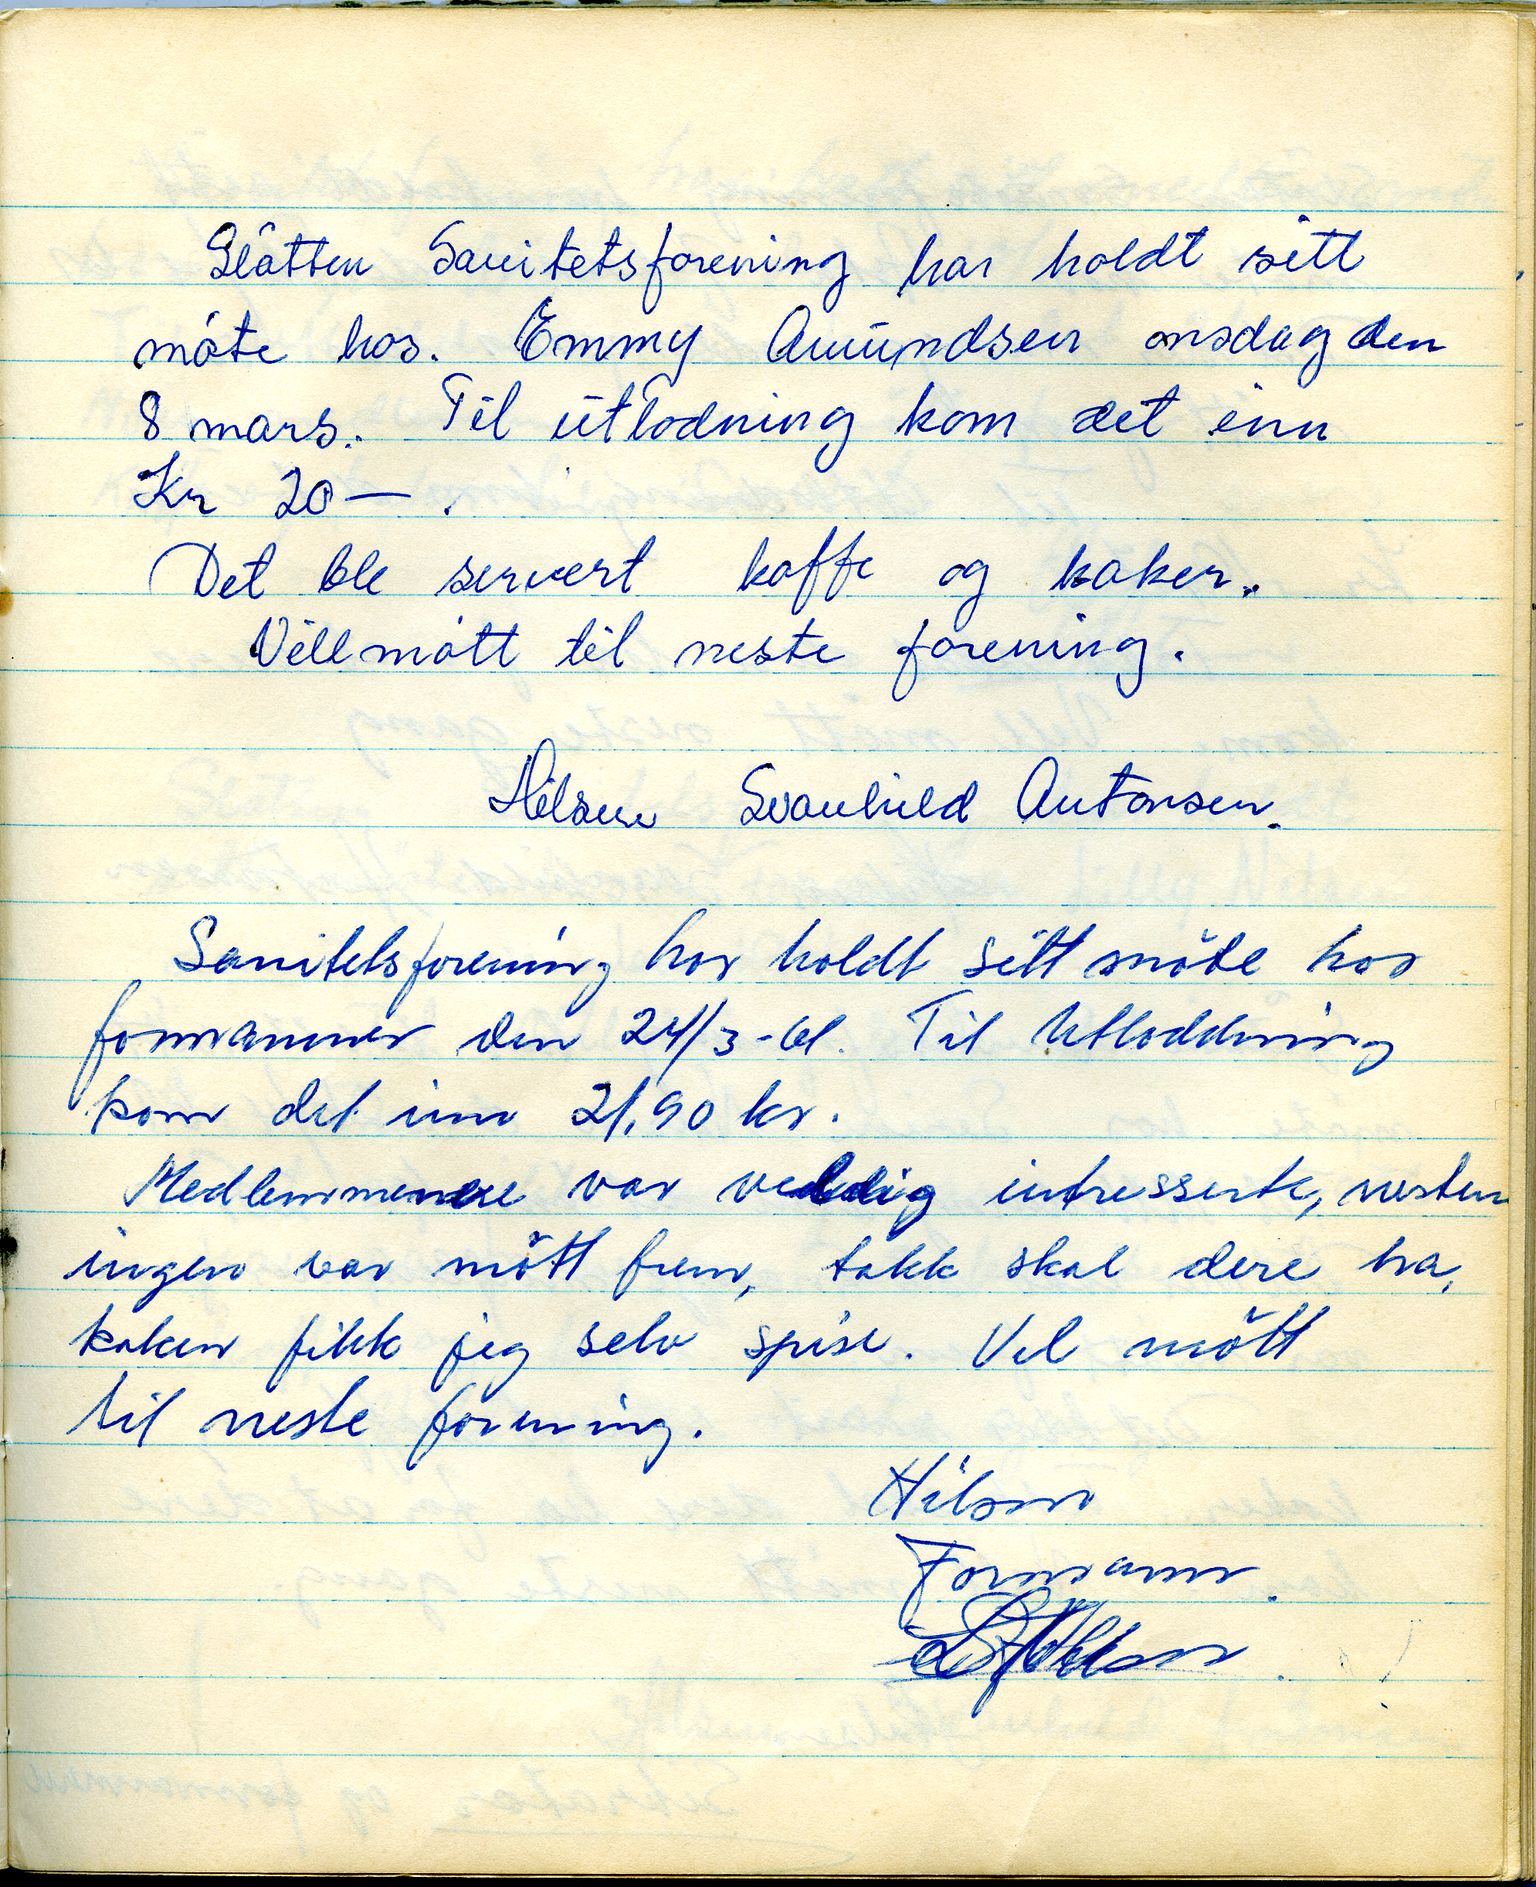 Slåtten Sanitetsforening har holdt sitt
møte hos. Emmy Amundsen onsdag den
8 mars. Til utlodning kom det inn
Kr 20— .
Det ble servert kaffe og kaker.
Vell møtt til neste forening.
Hilsen Svanhild Antonsen.
Sanitetsforening har holdt sitt møte hos
formannen den 24/3-61. Til Utloddning
kom det inn 21,90 kr.
Medlemmene var veldig intresserte, nesten
ingen var møtt frem, takk skal dere ha,
kaken fikk jeg selv spise. Vel møtt
til neste forening.
Hilsen
Formann.